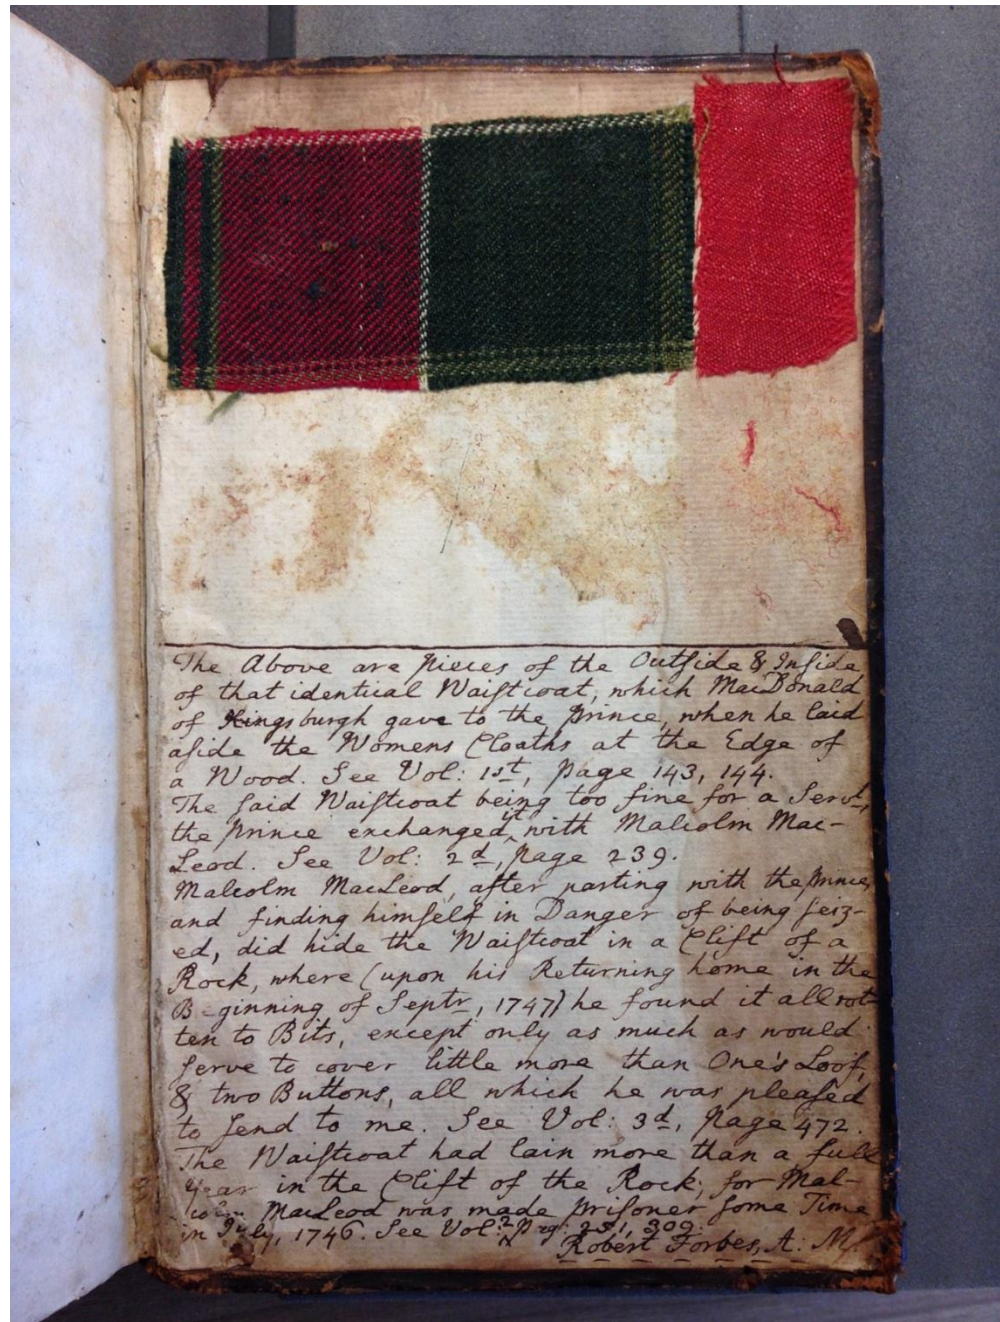 The Above are pieces of the Outſide & Inſide
of that identical Waiſtcoat, which MacDonald
of Kingsburgh gave to the Prince, when he laid
aſide the Womens Cloaths at the Edge of
a Wood. See Vol: 1st, page 143, 144.
The ſaid Waiſtcoat being too fine for a Servt,
the Prince exchanged it with Malcolm Mac-
Leod. See Vol: 2d, page 239.
Malcolm MacLeod, after parting with the Prince,
and finding himſelf in Danger of being ſeiz-
ed, did hide the Waiſtcoat in a Clift of a
Rock, where (upon his Returning home in the
Beginning of Septr, 1747) he found it all rot-
ten to Bits, except only as much as would
ſerve to cover little more than One's Loof,
& two Buttons, all which he was pleaſed
to ſend to me. See Vol: 3d, page 472.
The Waiſtcoat had lain more than a full
Year in the Clift of the Rock; for Mal-
colm MacLeod was made priſoner ſome Time
in July, 1746. See Vol: 2 pag: 251, 309.
Robert Forbes, A: M.